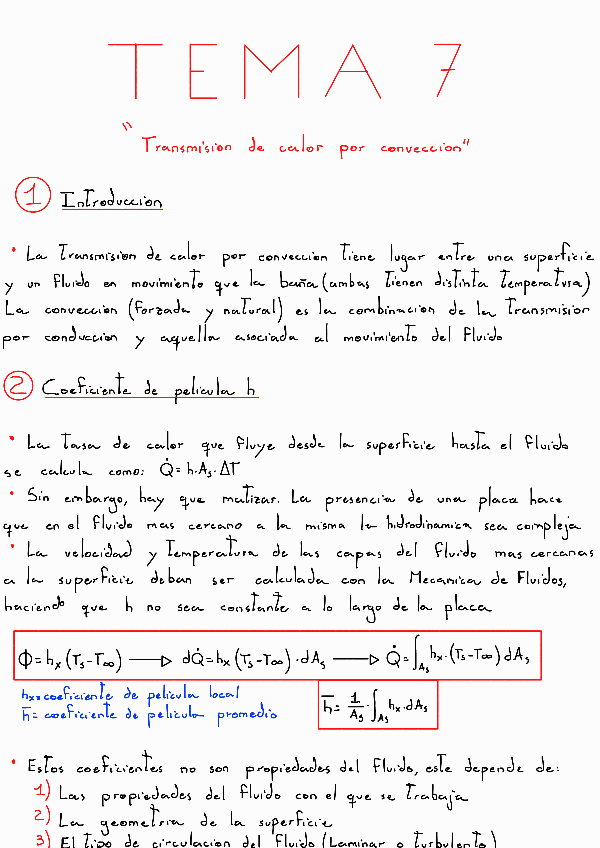 TEMA 7
"Transmision de calor por conveccion"
1 Introduccion
• La transmision de calor por conveccion tiene lugar entre una superficie
y un fluido en movimiento que la baña (ambas tienen distinta temperatura)
La conveccion (forzada y natural) es la combinacion de la transmision
por conduccion y aquella asociada al movimiento del fluido
2 Coeficiente de pelicula h
• La tasa de calor que fluye desde la superficie hasta el fluido
se calcula como: Q̇ = h·As·ΔT
• Sin embargo, hay que matizar. La presencia de una placa hace
que en el fluido mas cercano a la misma la hidrodinamica sea compleja
• La velocidad y temperatura de las capas del fluido mas cercanas
a la superficie deban ser calculada con la Mecanica de Fluidos,
haciendo que h no sea constante a lo largo de la placa
Φ = hx (Ts-T∞) → dQ̇ = hx (Ts-T∞)·dAs → Q̇ = ∫As hx·(Ts-T∞) dAs
hx = coeficiente de pelicula local
h̅ = coeficiente de pelicula promedio
h̅ = 1/As · ∫As hx·dAs
• Estos coeficientes no son propiedades del fluido, este depende de:
1) Las propiedades del fluido con el que se trabaja
2) La geometria de la superficie
3) El tipo de circulacion del fluido (Laminar o turbulento)